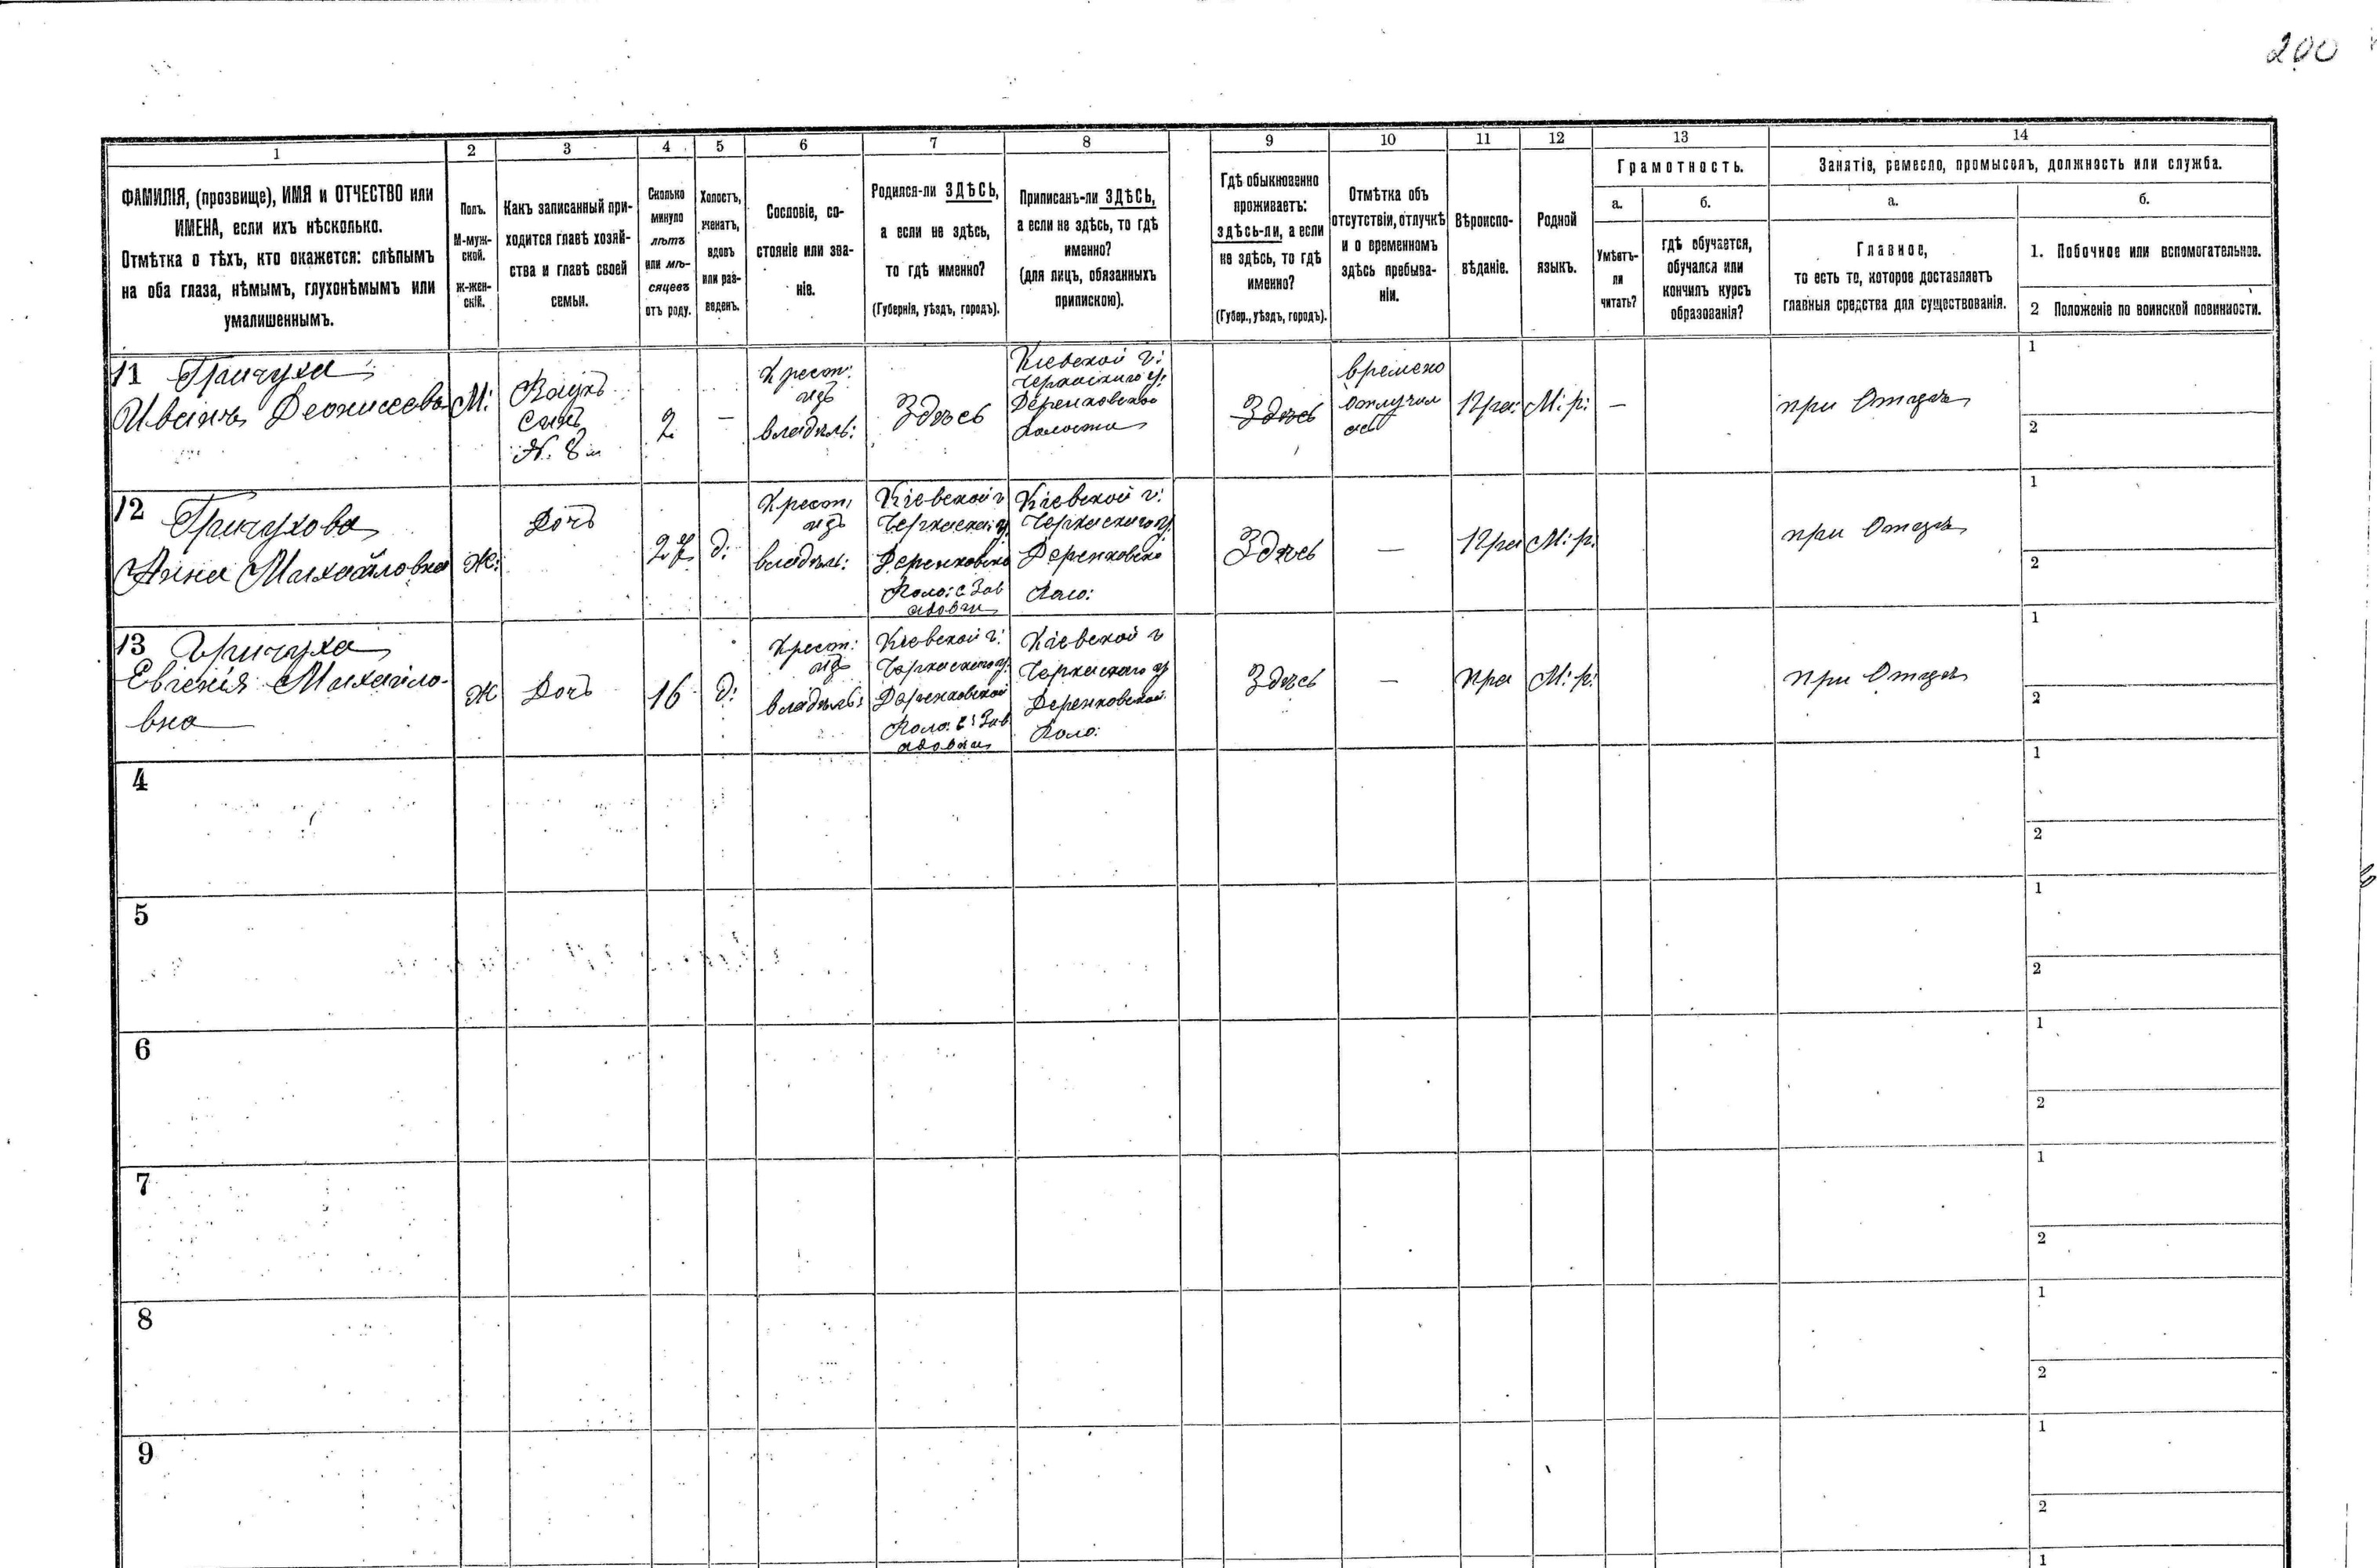 200
1
2
3
4
5
6
7
8
9
10
11
12
13
14
ФАМИЛІЯ, (прозвище), ИМЯ и ОТЧЕСТВО или
ИМЕНА, если ихъ нѣсколько.
Отмѣтка о тѣхъ, кто окажется: слѣпымъ
на оба глаза, нѣмымъ, глухонѣмымъ или
умалишеннымъ.
Полъ.
М-муж-
ской.
ж-жен-
скій.
Какъ записанный при-
ходится главѣ хозяй-
ства и главѣ своей
семьи.
Сколько
минуло
лѣтъ
или мѣ-
сяцевъ
отъ роду.
Холостъ,
женатъ,
вдовъ
или раз-
веденъ.
Сословіе, со-
стояніе или зва-
ніе.
Родился-ли ЗДѢСЬ,
а если не здѣсь,
то гдѣ именно?
(Губернія, уѣздъ, городъ).
Приписанъ-ли ЗДѢСЬ,
а если не здѣсь, то гдѣ
именно?
(для лицъ, обязанныхъ
припискою).
Гдѣ обыкновенно
проживаетъ:
здѣсь-ли, а если
не здѣсь, то гдѣ
именно?
(Губер., уѣздъ, городъ).
Отмѣтка объ
отсутствіи, отлучкѣ
и о временномъ
здѣсь пребыва-
ніи.
Вѣроиспо-
вѣданіе.
Родной
языкъ.
Грамотность.
а.
Умѣетъ-
ли
читать?
б.
гдѣ обучается,
обучался или
кончилъ курсъ
образованія?
Занятія, ремесло, промыселъ, должность или служба.
а.
Главное,
то есть то, которое доставляетъ
главныя средства для существованія.
б.
1. Побочное или вспомогательное.
2 Положеніе по воинской повинности.
11 Гричуха
Иванъ Деонисеевъ
М:
Внукъ
Сынъ
N. 8
2
—
Крест:
изъ
владѣль:
Здѣсь
Кіевской г:
Черкаскаго у:
Деренковской
Волости
Здѣсь
времено
Отлучил
ся
Пра:
М: р:
—
при Отцѣ
1
2
12 Гричухова
Анна Михайловна
Ж:
Дочь
д:
Крест:
изъ
владѣль:
Кіевской г
Черкаскаго у
Деренковско
Воло: с Зав
адовки
Кіевской г:
Черкаскаго у
Деренковско
Воло:
Здѣсь
—
Пра
М: р:
при Отцѣ
1
2
13 Гричуха
Евгенія Михайло-
вна
Ж
Дочь
16
д:
Крест:
изъ
владѣль:
Кіевской г:
Черкаскаго у:
Деренковской
Воло: с: Зав
адовки
Кіевской г
Черкаскаго у
Деренковской
Воло:
Здѣсь
—
Пра
М: р:
при Отцѣ
1
2
4
1
2
5
1
2
6
1
2
7
1
2
8
1
2
9
1
2
1